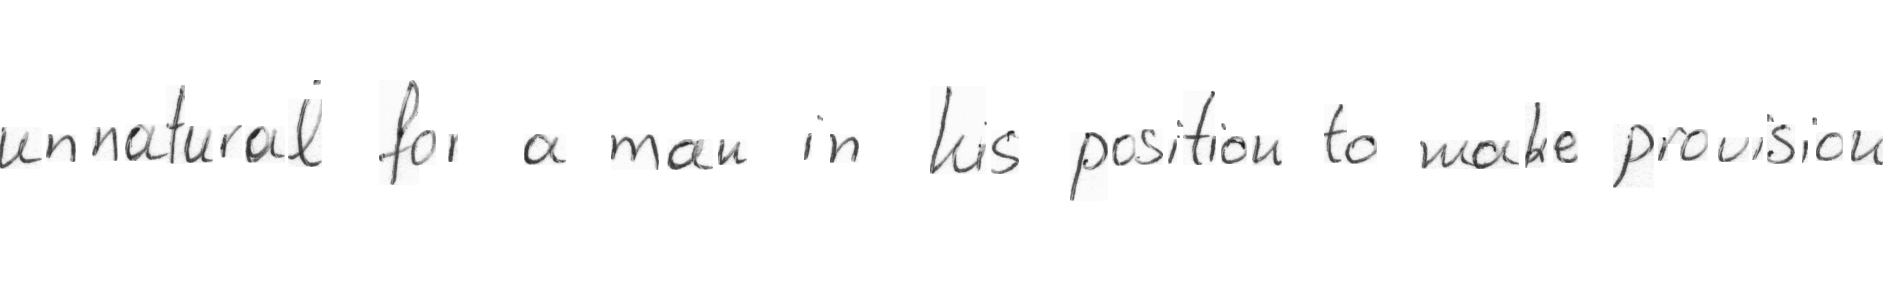 unnatural for a man in his position to make provision